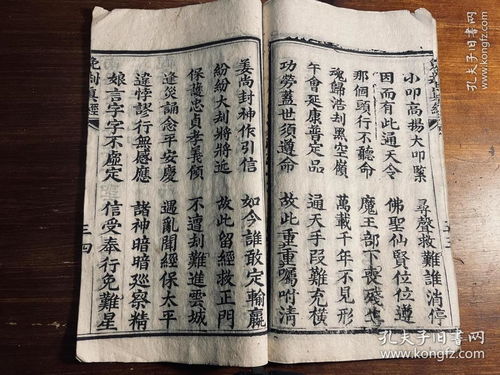 小叩高揚大叩槩 尋聲救難誰消停
因而有此通天令 佛聖仙賢位位遵
那個頭行不聽命 魔王部下喪
魂歸浩刦黑空嶺 萬載千年不見形
午會延康普定品 通天手段難充橫
功勞蓋世須遵命 故此重重囑咐清
姜尚封神作引信 如今誰敢定輸贏
紛紛大刦將將近 故此留經救正門
保護忠貞孝義傾 不遭刦難進雲城
逢災誦念平安慶 遇亂聞經保太平
違悖謬行無感應 諸神暗暗廵察精
娘言字字不虛定 信受奉行免難星
免刦真經 三四
孔夫子旧书网
www.kongfz.com